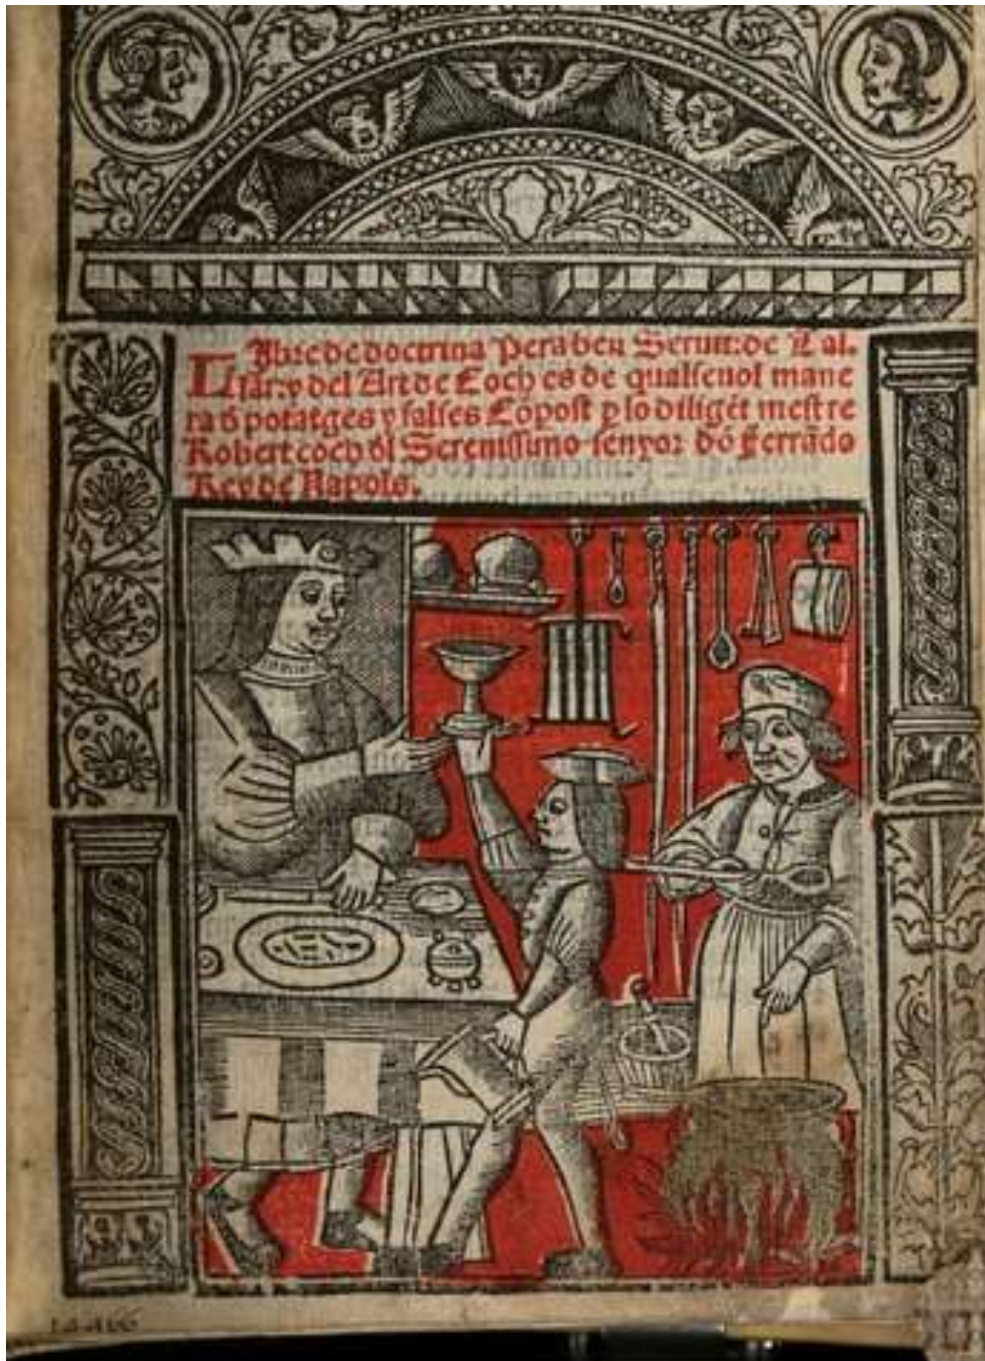 Llibre de doctrina Pera ben Seruir: de Tal-
lar: y del Art de Coch es de qualseuol mane
ra d̄ potatges y salses Cōpost p̱ lo diligēt mestre
Robert coch dl̄ Serenissimo senyor dō Ferrādo
Rey de Napols.